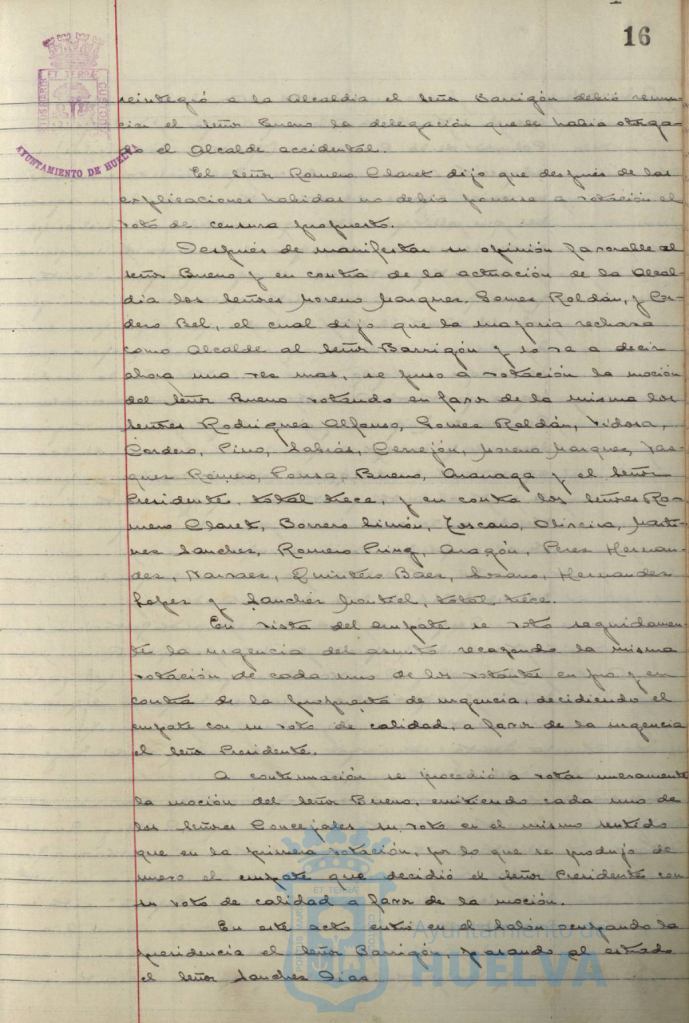 16
PORTUS MARIS ET TERRAE CUSTODIA
AYUNTAMIENTO DE HUELVA
reintegró a la Alcaldia el Señor Barrigón debió renun-
ciar el Señor Bueno la delegación que le habia otorga-
do el Alcalde accidental.
El Señor Romero Claret dijo que después de las
explicaciones habidas no debia ponerse a votación el
voto de censura propuesto.
Después de manifestar su opinión favorable al
Señor Bueno y en contra de la actuación de la Alcal-
dia los Señores Moreno Marquez, Gomez Roldán, y Cor-
dero Bel, el cual dijo que la mayoria rechazó
como Alcalde al Señor Barrigón y lo va a decir
ahora una vez mas, se puso a votación la moción
del Señor Bueno votando en favor de la misma los
Señores Rodriguez Alfonso, Gomez Roldán, Vidosa,
Cordero, Pino, Cerrejón, Moreno Marquez, Vaz-
quez Romero, Ponsa, Bueno, Aranaga y el Señor
Presidente, total trece, y en contra los Señores Ro-
mero Claret, Borrero Limón, Toscano, Oliveira, Marti-
nez Sanchez, Romero Aragón, Perez Hernan-
dez, Narvaez, Quintero Baez, Lozano, Hernandez
Lopez y Sanchez total, trece.
En vista del empate se votó seguidamen-
te la urgencia del asunto recayendo la misma
votación de cada uno de los votantes en pro y en
contra de la propuesta de urgencia, decidiendo el
empate con su voto de calidad, a favor de la urgencia
el Señor Presidente.
A continuación se procedió a votar nuevamente
la moción del Señor Bueno, emitiendo cada uno de
los Señores Concejales su voto en el mismo sentido
que en la primera votación, por lo que se produjo de
nuevo el empate que decidió el Señor Presidente con
su voto de calidad a favor de la moción.
En este acto entró en el Salón ocupando la
presidencia el Señor Barrigón, pasando al estrado
el Señor Sanchez Dias.
Ayuntamiento de
HUELVA